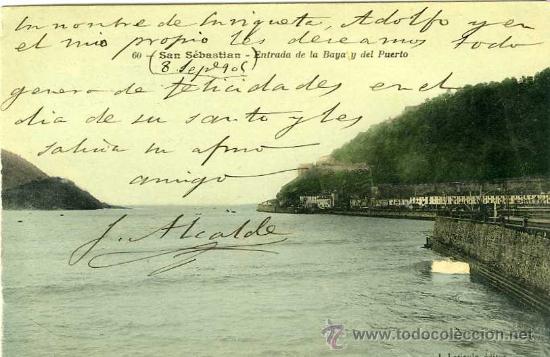 En nombre de Enriqueta, Adolfo y en
el mio propio les deseamos todo
60 - San Sébastian - Entrada de la Baya y del Puerto
(8 Sepbre 906)
genero de felicidades en el
dia de su santo y les
saluda su afmo
amigo
J. Alcalde
todocoleccion
www.todocoleccion.net